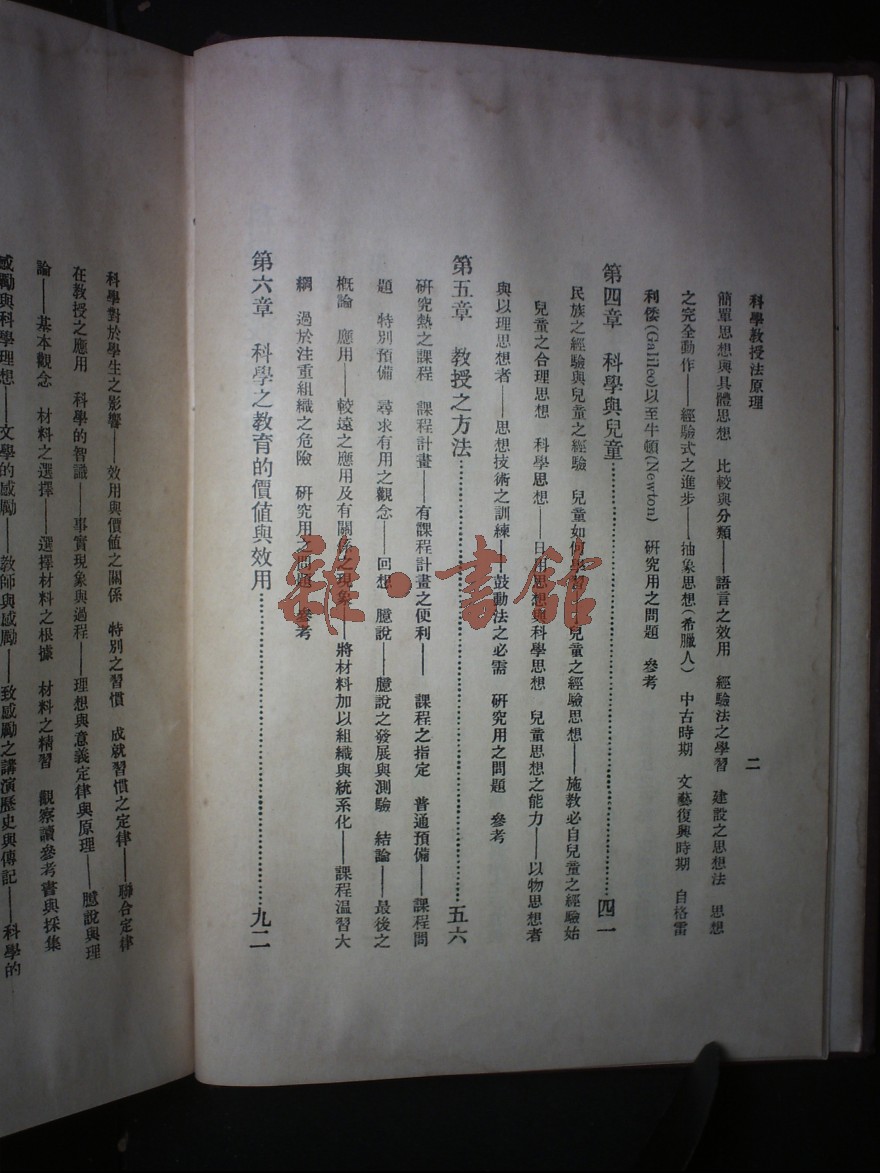 科學教授法原理
二
簡單思想與具體思想　比較與分類——語言之效用　經驗法之學習　建設之思想法　思想
之完全動作——經驗式之進步——抽象思想(希臘人)　中古時期　文藝復興時期　自格雷
利倭(Galileo)以至牛頓(Newton)　研究用之問題　參考
第四章　科學與兒童……四一
民族之經驗與兒童之經驗　兒童如何學習——兒童之經驗思想——施教必自兒童之經驗始
兒童之合理思想　科學思想——日用思想與科學思想　兒童思想之能力——以物思想者
與以理思想者——思想技術之訓練——鼓動法之必需　研究用之問題　參考
第五章　教授之方法……五六
研究熱之課程　課程計畫——有課程計畫之便利——　課程之指定　普通預備——課程問
題　特別預備　尋求有用之觀念——回想　臆說——臆說之發展與測驗　結論——最後之
概論　應用——較遠之應用及有關係之現象——將材料加以組織與統系化——課程温習大
綱　過於注重組織之危險　研究用之問題　參考
第六章　科學之教育的價值與效用……九二
科學對於學生之影響——效用與價值之關係　特別之習慣　成就習慣之定律——聯合定律
在教授之應用　科學的智識——事實現象與過程——理想與意義定律與原理——臆說與理
論——基本觀念　材料之選擇——選擇材料之根據　材料之精習　觀察讀參考書與採集
感勵與科學理想——文學的感勵——教師與感勵——致感勵之講演歷史與傳記——科學的
雜·書館